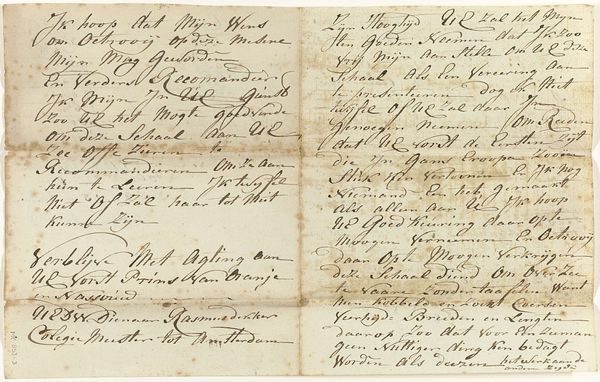 Ik hoop dat Mijn Wens
om Octrooij op deze Meine
Mijn Mag Geworden
En Verders Recomandeer
Ik Mijn In UE Gunst
Zoo UE het Mogte Goedvinde
om deze Schaal aan UE
Zee Offe Zieren te
Recommandieren om ze aan
hun te Leeren Ik twijfel
Niet Of Zal haar tot Nut
kunne Zijn
Verblijve Met Agting aan
UE Vorst Prins Van Oranje
en Nassouw
UEDW Dienaar Rasmus dekker
Colegie Meester tot Amsterdam
Zijn Hooghijd UE Zal het Mijn
ten Goeden Neemen dat Ik Zoo
Vrij Mijn Aan Stelle Om UE deze
Schaal Als Een Vereering Aan
te presenteeren dog Ik
twijfel Of UE Zal daar In
Genoegen Neemen Om Reeden
dat UE Vorst de Eersten Zijt
die In Gans Euroopa Zooen
Stuk Ken Vertoonen En Ik Nog
Niemand En heb Gemaakt
Als allen Aan U Ik hoop
UE Goed Keuring daar op te
Moogen Verneemen En Octrooij
daar Op te Moogen Verkrijgen
deze Schaal diend Om Over Zee
te Vaare Zonder taafel Want
Men kobbeld en Zoekt
Breeden en Lengten
daar op Zoo dat Voor Een Zeeman
geen Nuttiger ding ken bedagt
Worden Als deezen het werk aan de
andere Zeyde